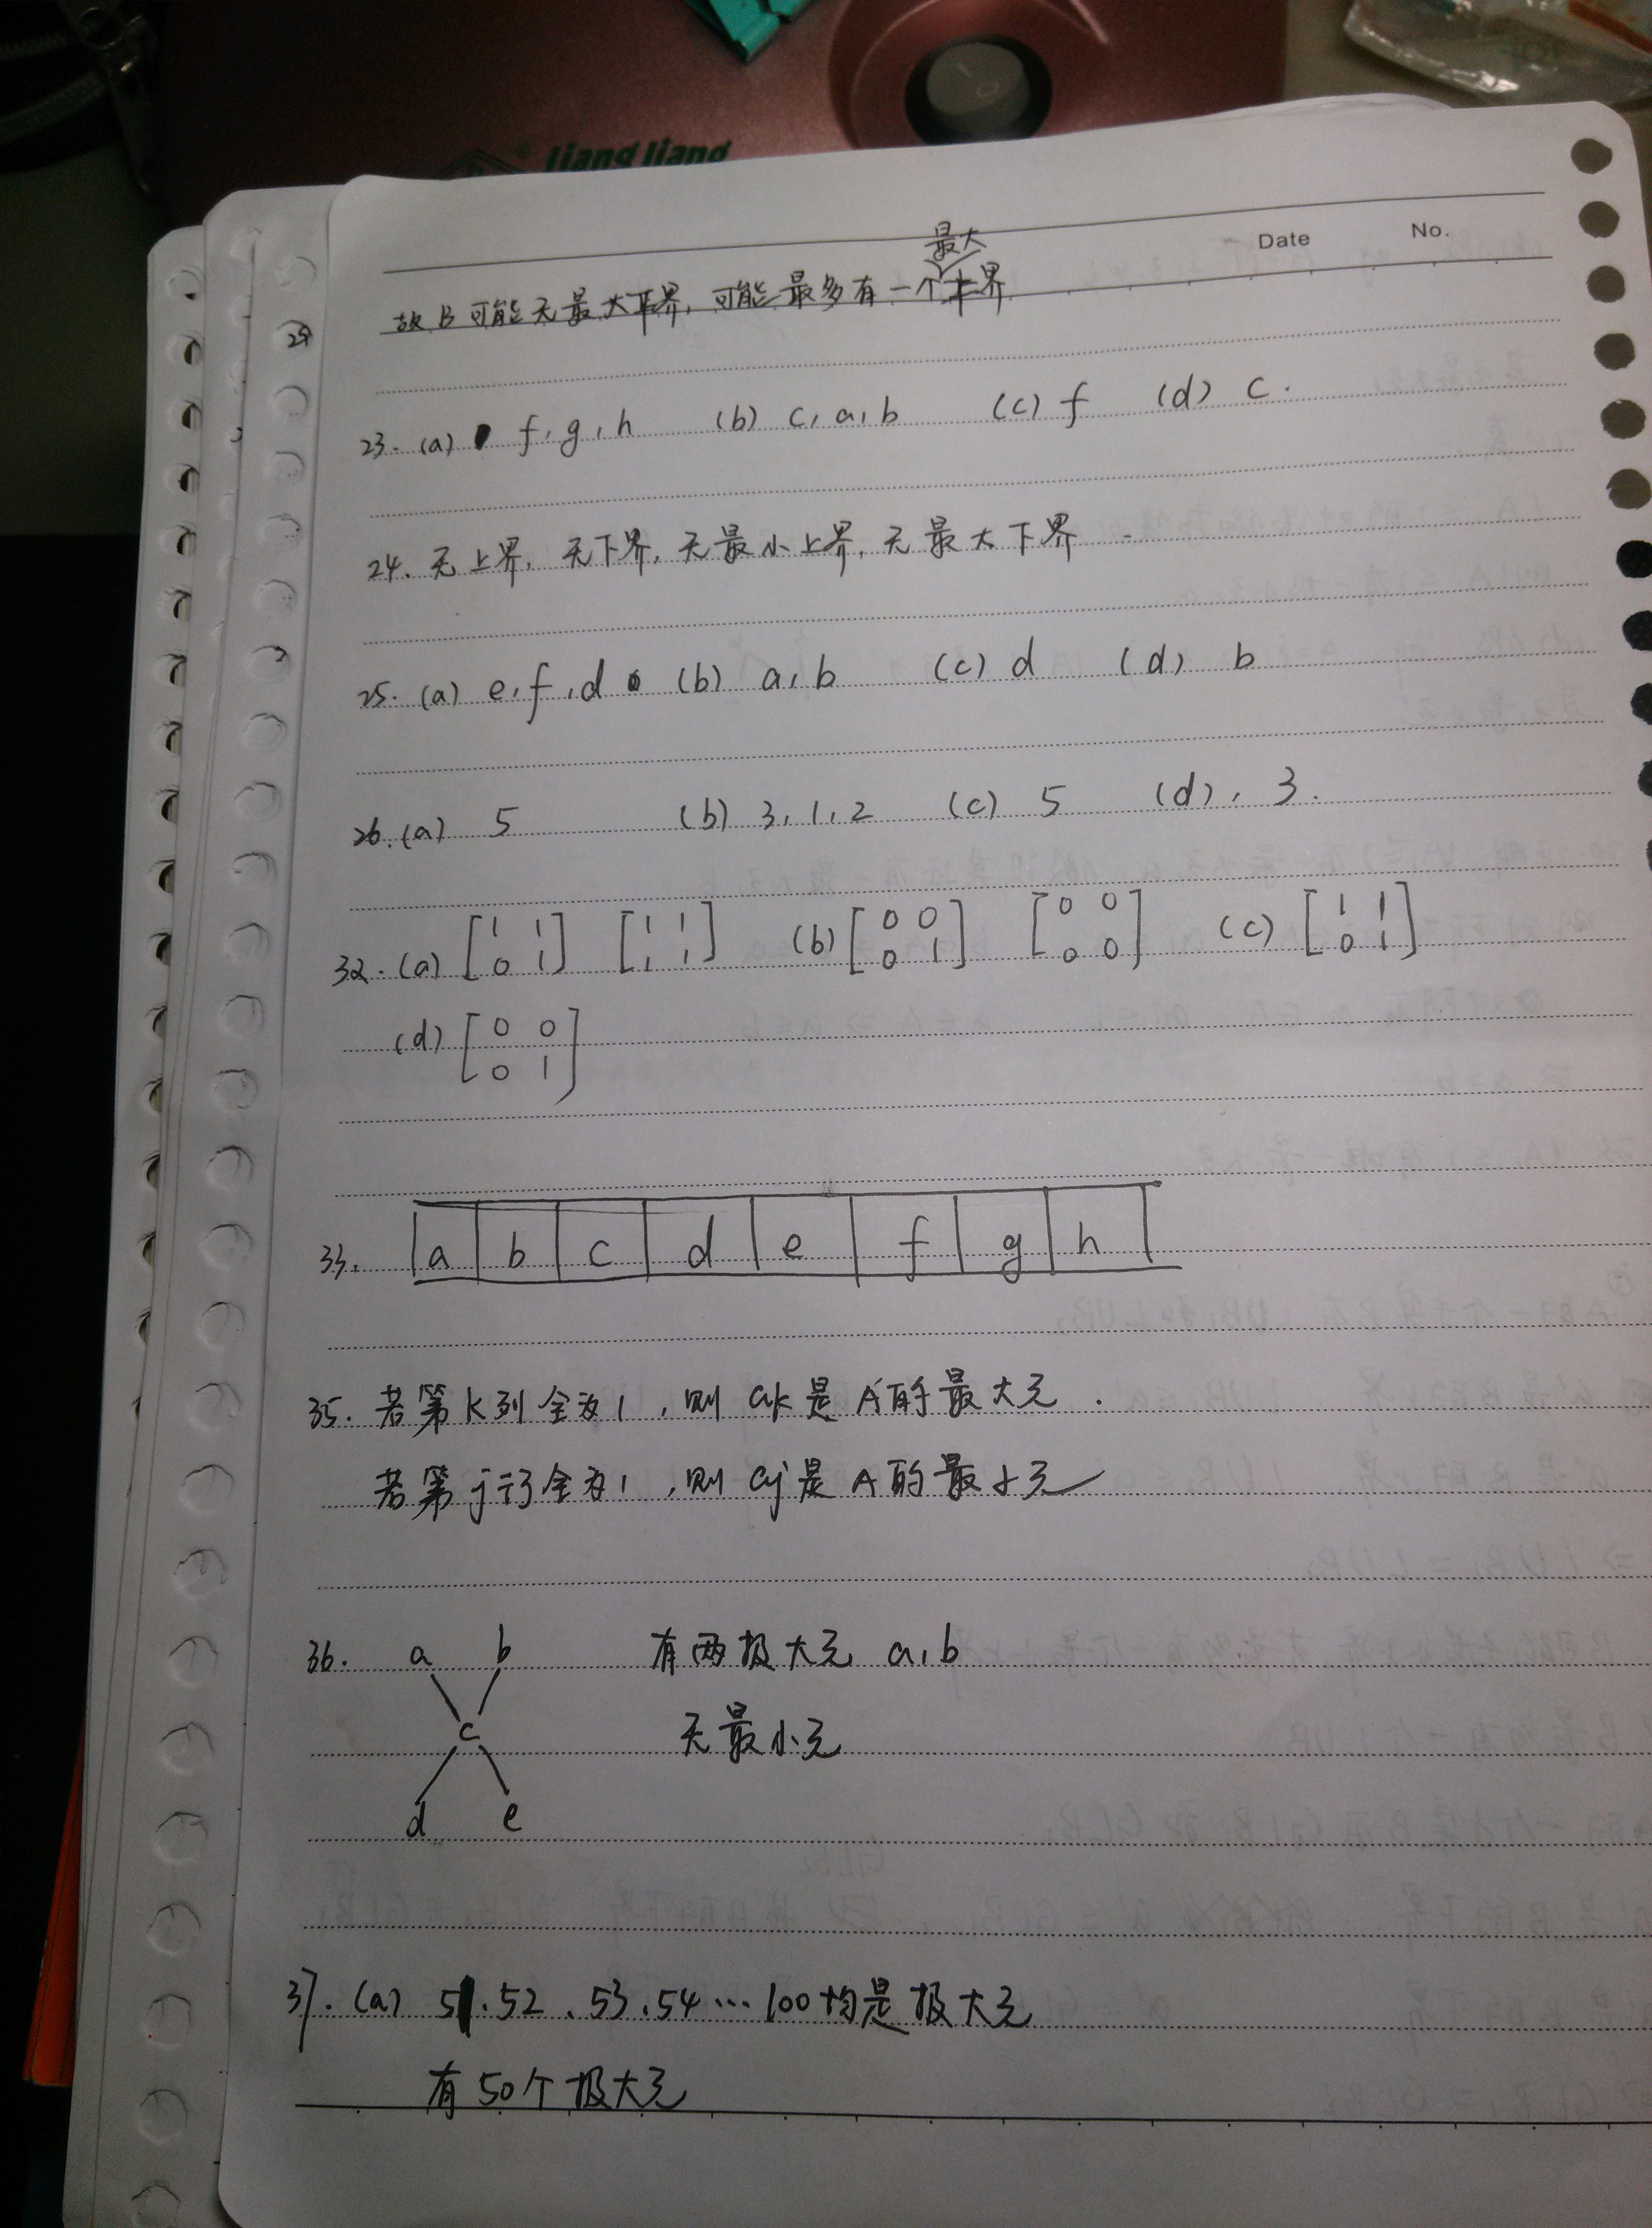 liang liang
Date No.
最大
故B可能无最大下界,可能最多有一个下界
23. (a) f, g, h (b) c, a, b (c) f (d) c.
24. 无上界, 无下界, 无最小上界, 无最大下界
25. (a) e, f, d (b) a, b (c) d (d) b
26. (a) 5 (b) 3, 1, 2 (c) 5 (d), 3.
32. (a) [1 1 [1 1 (b) [0 0 [0 0 (c) [1 1
0 1] 1 1] 0 1] 0 0] 0 1]
(d) [0 0
0 1]
33. a b c d e f g h
35. 若第k列全为1, 则ak是A的最大元.
若第j行全为1, 则aj是A的最小元
36. a b 有两极大元 a, b
c 无最小元
d e
37. (a) 51. 52. 53. 54 ... 100均是极大元
有50个极大元